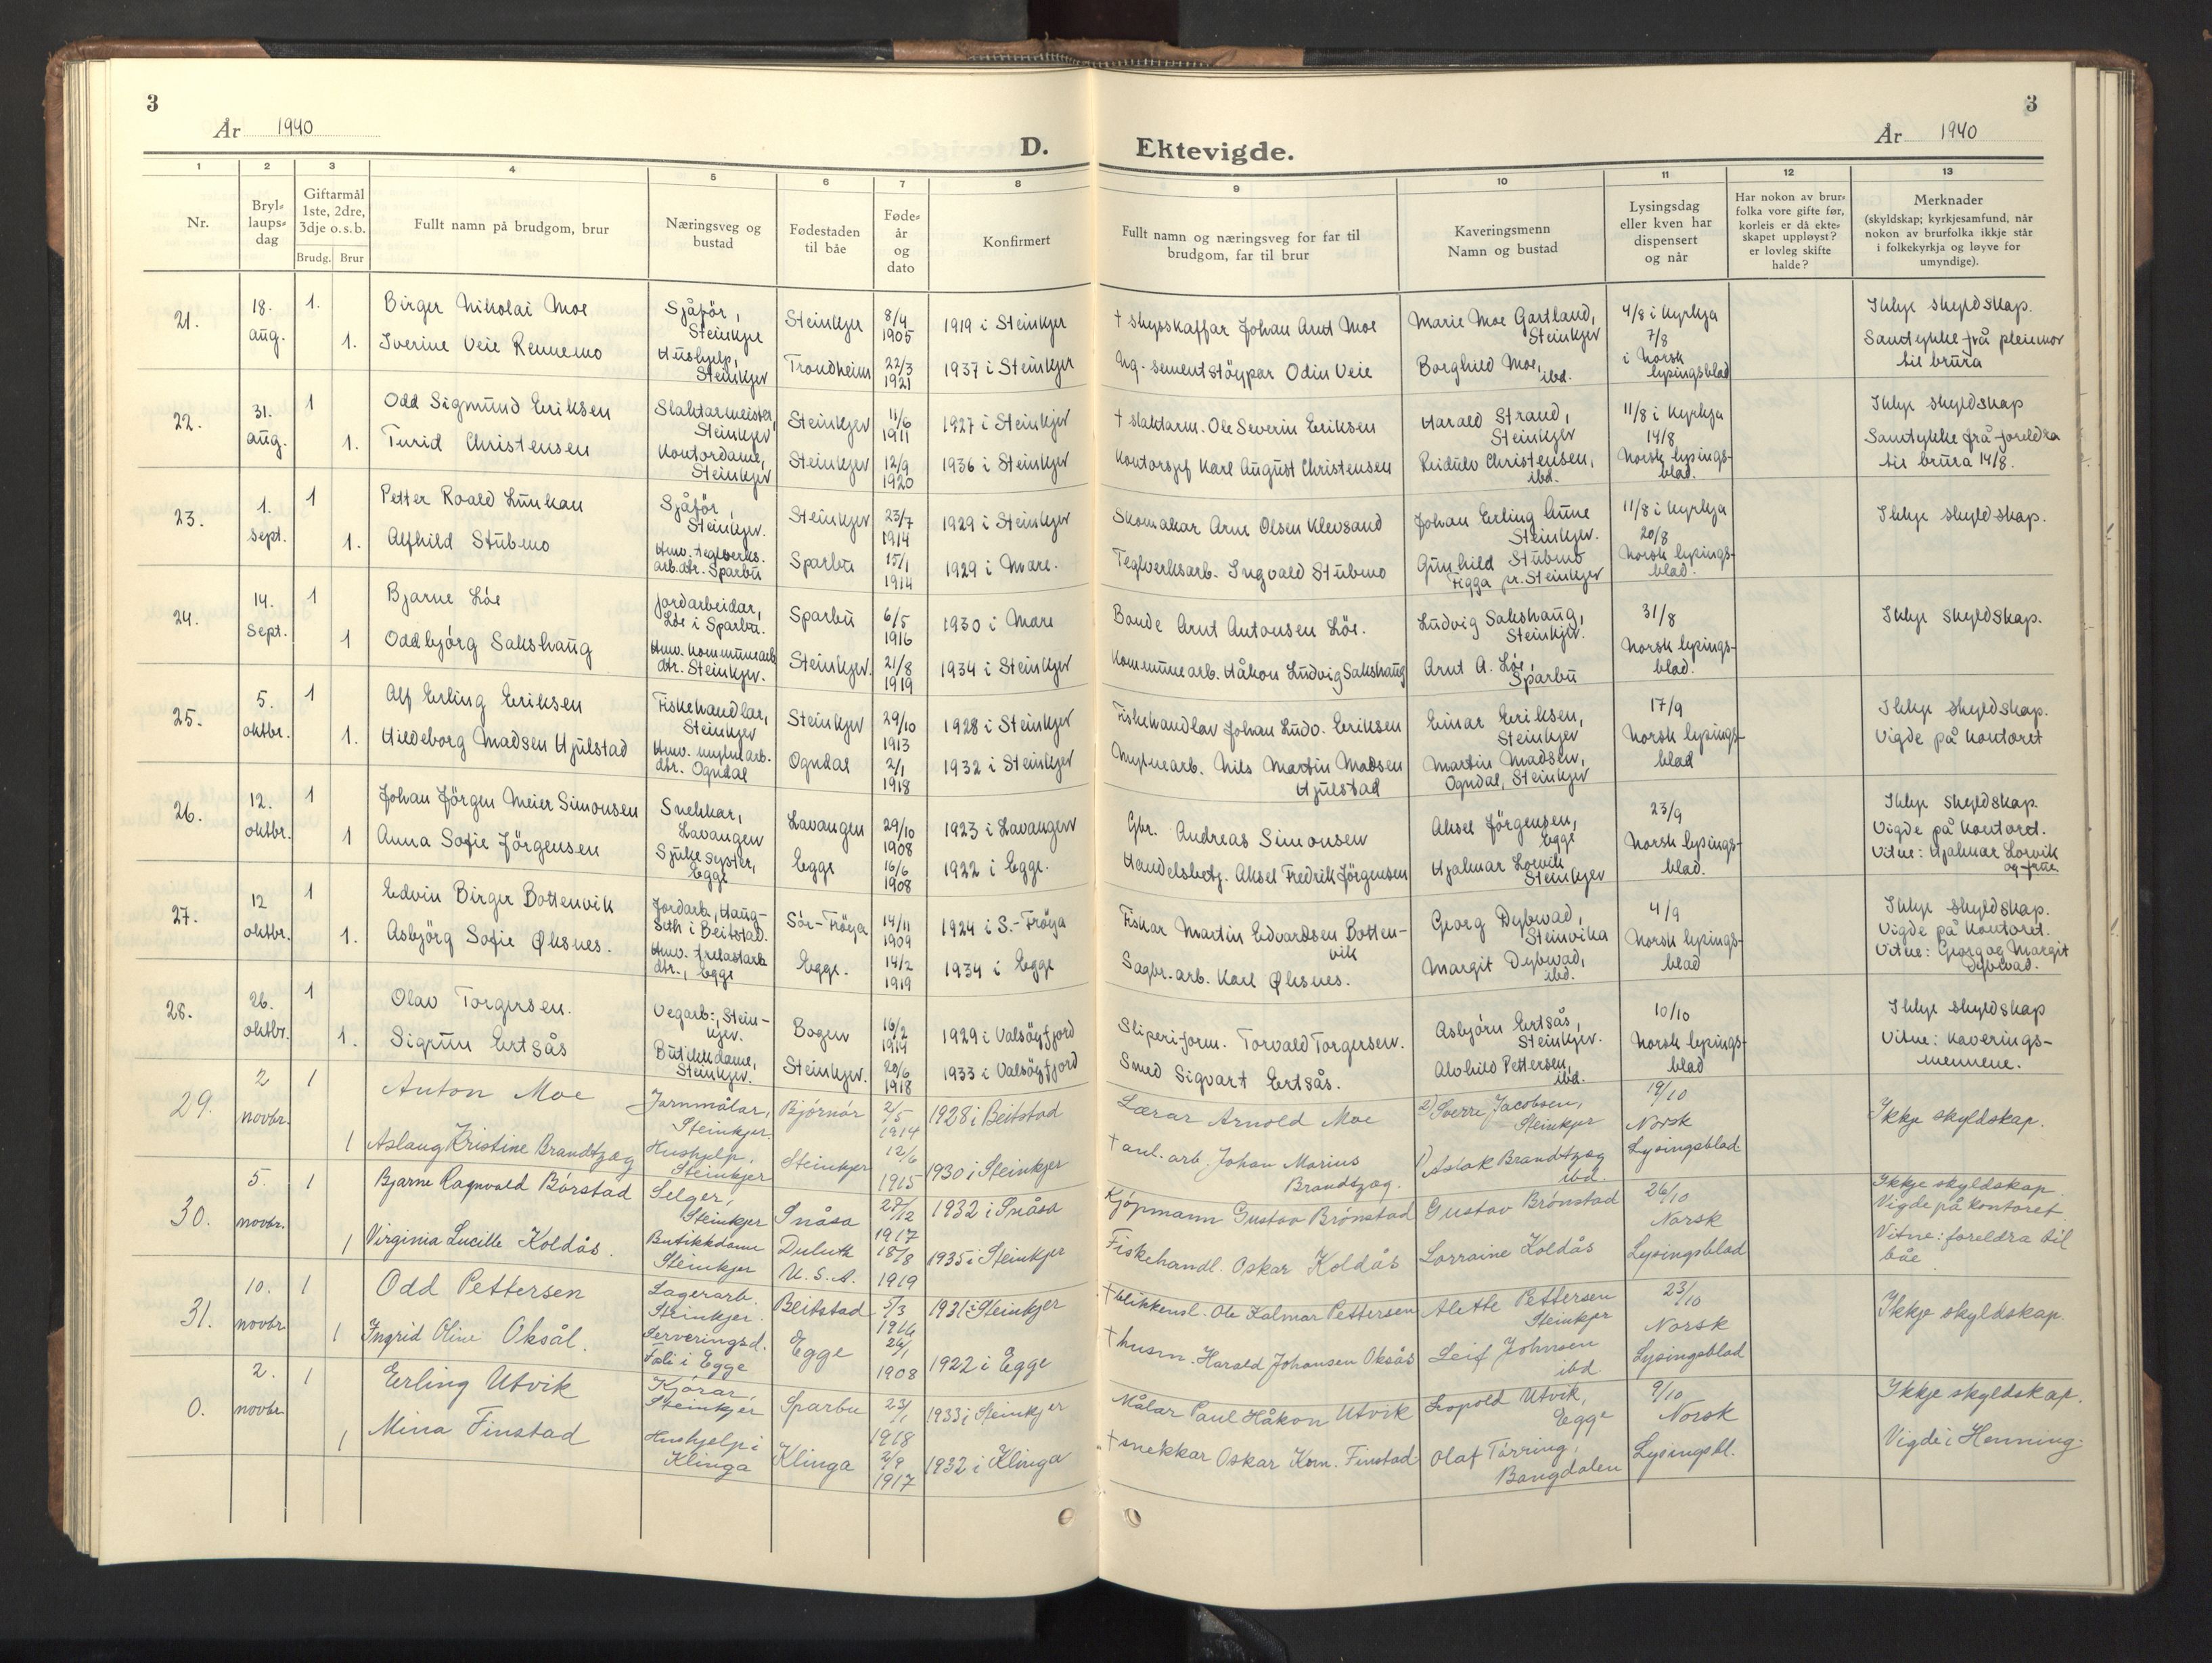 3
År 1940
D.
1 2 3 4 5 6 7 8
Nr.
Bryl-
laups-
dag
Giftarmål
1ste, 2dre,
3dje o. s. b.
Brudg. Brur
Fullt namn på brudgom, brur
Næringsveg og
bustad
Fødestaden
til båe
Føde-
år
og
dato
Konfirmert
21.
18.
aug.
1.
Birger Nikolai Moe
Sjåför,
Steinkjer
Steinkjer
8/4
1905
1919 i Steinkjer
1.
Iverine Veie Rennemo
Hushjelp,
Steinkjer
Trondheim
22/3
1921
1937 i Steinkjer
22.
31.
aug.
1
Odd Sigmund Eriksen
Slaktarmeister,
Steinkjer
Steinkjer
11/6
1911
1927 i Steinkjer
1.
Turid Christensen
Kontordame,
Steinkjer
Steinkjer
12/9
1920
1936 i Steinkjer
23.
1.
sept.
1
Petter Roald Lunkan
Sjåför,
Steinkjer.
Steinkjer
23/7
1914
1929 i Steinkjer
1.
Alfhild Stubmo
Hmv. teglverks.
arb.dtr. Sparbu
Sparbu
15/1
1914
1929 i Mære.
24.
14.
Sept.
1
Bjarne Löe
Jordarbeidar,
Löe i Sparbu.
Sparbu
6/5
1916
1930 i Mære
1
Oddbjörg Sakshaug
Hmv. Kommunearb.
dtr. Steinkjer.
Steinkjer.
21/8
1919
1934 i Steinkjer
25.
5.
oktbr.
1
Alf Erling Eriksen
Fiskehandlar,
Steinkjer
Steinkjer
29/10
1913
1928 i Steinkjer
1.
Hildeborg Madsen Hjulstad
Hmv. mylnearb.
dtr. Ogndal
Ogndal
2/1
1918
1932 i Steinkjer
26.
12.
oktbr.
1
Johan Jörgen Meier Simonsen
Snekkar,
Lavangen
Lavangen
29/10
1908
1923 i Lavangen
1
Anna Sofie Jörgensen
Sjukesyster,
Egge
Egge
16/6
1908
1922 i Egge.
27.
12
oktbr.
1
Edvin Birger Bottenvik
Jordarb., Haug-
Seth i Beitstad.
Sör-Fröya
14/11
1909
1924 i S.-Fröya
1.
Asbjörg Sofie Øksnes.
Hmv. trelastarb.
dtr., Egge
Egge.
14/2
1919
1934 i Egge
28.
26.
oktbr.
1
Olav Torgersen.
Vegarb., Stein-
kjer.
Bogen
16/2
1914
1929 i Valsöyfjord
1.
Sigrun Ertsås
Butikkdame,
Steinkjer.
Steinkjer.
20/6
1918
1933 i Valsöyfjord
29.
2
novbr.
1
Anton Moe
Jarnmålar,
Steinkjer.
Bjórnór
2/5
1914
1928 i Beitstad
1
Aslaug Kristine Brandtzæg
Hushjelp,
Steinkjer
Steinkjer
12/6
1915
1930 i Steinkjer
30.
5.
novbr.
1
Bjarne Ragnvald Börstad
Selger,
Steinkjer
Snåsa
28/12
1917
1932 i Snåsa
1
Virginia Lucille Koldås.
Butikkdame
Steinkjer
Duluth
U.S.A.
18/8
1919
1935 i Steinkjer
31.
10.
novbr
1
Odd Pettersen
Lagerarb.
Steinkjer.
Beitstad
5/3
1916
1931 i Steinkjer
1
Ingrid Oline Oksål.
Serveringsd.
Føli i Egge
Egge
26/1
1908
1922 i Egge
0.
2.
novbr
1
Erling Utvik
Kjórar,
Steinkjer
Sparbu
23/1
1918
1933 i Steinkjer
1
Mina Finstad
Hushjelp i
Klinga
Klinga
2/9
1917
1932 i Klinga
3
År 1940
Ektevigde.
9 10 11 12 13
Fullt namn og næringsveg for far til
brudgom, far til brur
Kaveringsmenn
Namn og bustad
Lysingsdag
eller kven har
dispensert
og når
Har nokon av brur-
folka vore gifte før,
korleis er då ekte-
skapet uppløyst?
er lovleg skifte
halde?
Merknader
(skyldskap; kyrkjesamfund, når
nokon av brurfolka ikkje står
i folkekyrkja og løyve for
umyndige).
† skysskaffar Johan Arnt Moe
Marie Moe Gartland,
Steinkjer
4/8 i Kyrkja
7/8
i Norsk
lysingsblad
Ikkje skyldskap.
Samtykke frå pleiemor
til brura
Ug. sementstöypar Odin Veie
Borghild Moe,
ibd.
† slaktarm. Ole Severin Eriksen
Harald Strand,
Steinkjer
11/8 i Kyrkja
14/8
Norsk lysings-
blad.
Ikkje skyldskap
Samtykke frå foreldra
til brura 14/8.
Kontorsjef Karl August Christensen
Reidulv Christensen,
ibd.
Skomakar Arne Olsen Klevsand
Johan Erling Aune
Steinkjer.
11/8 i Kyrkja
20/8
Norsk lysings-
blad.
Ikkje skyldskap.
Teglverksarb. Ingvald Stubmo
Gunhild Stubmo
Figga pr. Steinkjer
Bonde Arnt Antonsen Löe.
Ludvig Sakshaug,
Steinkjer.
31/8
Norsk lysings-
blad.
Ikkje skyldskap.
Kommunearb. Håkon Ludvig Sakshaug
Arnt A. Löe,
Sparbu
Fiskehandlar Johan Ludv. Eriksen
Einar Eriksen,
Steinkjer
17/9
Norsk lysings-
blad
Ikkje skyldskap.
Vigde på kontoret
Mylnearb. Nils Martin Madsen
Hjulstad
Martin Madsen,
Ogndal, Steinkjer
Gbr. Andreas Simonsen
Aksel Jörgensen,
Egge
23/9
Norsk lysings-
blad.
Ikkje skyldskap.
Vigde på kontoret.
Vitne: Hjalmar Lorvik
og frue
Handelsbetj. Aksel Fredrik Jörgensen
Hjalmar Lorvik
Steinkjer
Fiskar Martin Edvardsen Botten-
vik
Georg Dybwad,
Steinvika
4/9
Norsk lysings-
blad
Ikkje skyldskap.
Vigde på kontoret.
Vitne: Georg og Margit
Dybwad.
Sagbr.arb. Karl Øksnes.
Margit Dybwad,
ibd.
Sliperiform. Torvald Torgersen.
Asbjörn Ertsås,
Steinkjer.
10/10
Norsk lysings-
blad
Ikkje skyldskap
Vitne: kaverings-
mennene.
Smed Sigvart Ertsås.
Alvhild Pettersen,
ibd.
Lærar Arnold Moe
2) Sverre Jacobsen,
Steinkjer
19/10
Norsk
Lysingsblad.
Ikkje skyldskap.
† anl. arb. Johan Marius
Brandtzæg.
1) Aslak Brandtzæg
ibd.
Kjópmann Gustav Brónstad
Gustav Brónstad
26/10
Norsk
Lysingsblad
Ikkje skyldskap.
Vigde på kontoret
Vitne: foreldra til
båe.
Fiskehandl. Oskar Koldås
Lorraine Koldås
† blikkensl. Ole Kalmar Pettersen
Alette Pettersen
Steinkjer
23/10
Norsk
Lysingsblad
Ikkje skyldskap.
† husm. Harald Johansen Oksås
Leif Johnsen
ibd.
Målar Paul Håkon Utvik
Leopold Utvik,
Egge
9/10
Norsk
Lysingsbl.
Ikkje skyldskap.
Vigde i Henning.
† snekkar Oskar Korn. Finstad
Olaf Tórring,
Bangdalen